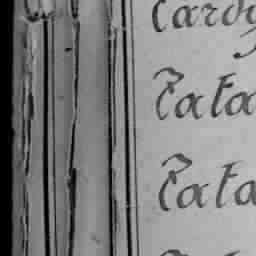 Cardo
Cata
Cata